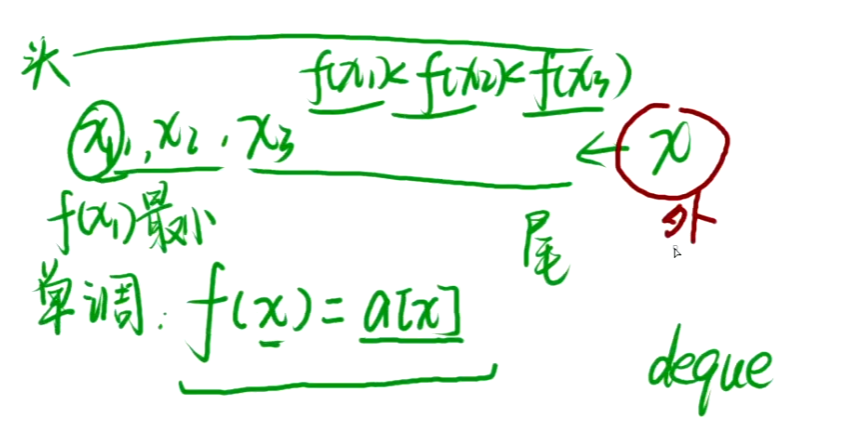 头
f(x₁)<f(x₂)<f(x₃)
x₁, x₂, x₃ ← x
f(x₁)最小
尾
外
单调: f(x) = a[x]
deque